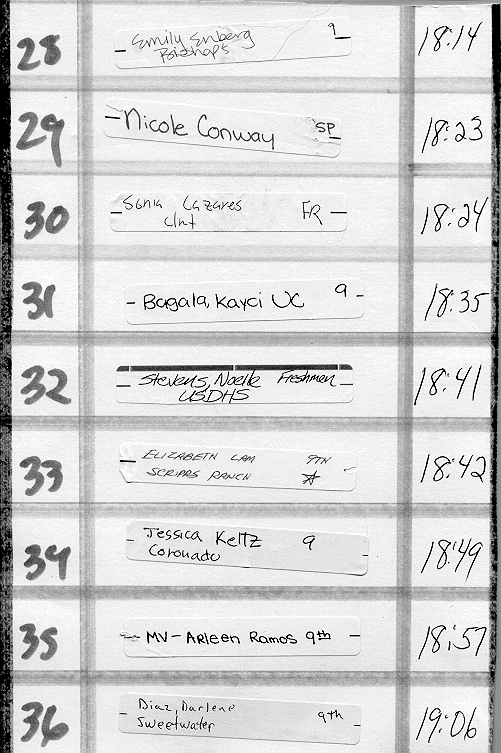 28 Emily Enberg 9 18:14
Bishops
29 Nicole Conway SP 18:23
30 Sonia Cazares FR 18:24
31 Bagala, Kayci UC 9 18:35
32 Stevens, Noelle Freshmen 18:41
USDHS
33 ELIZABETH LAM 9TH 18:42
SCRIPPS RANCH
34 Jessica Keltz 9 18:49
Coronado
35 MV-Arleen Ramos 9th 18:57
36 Diaz, Darlene 9th 19:06
Sweetwater